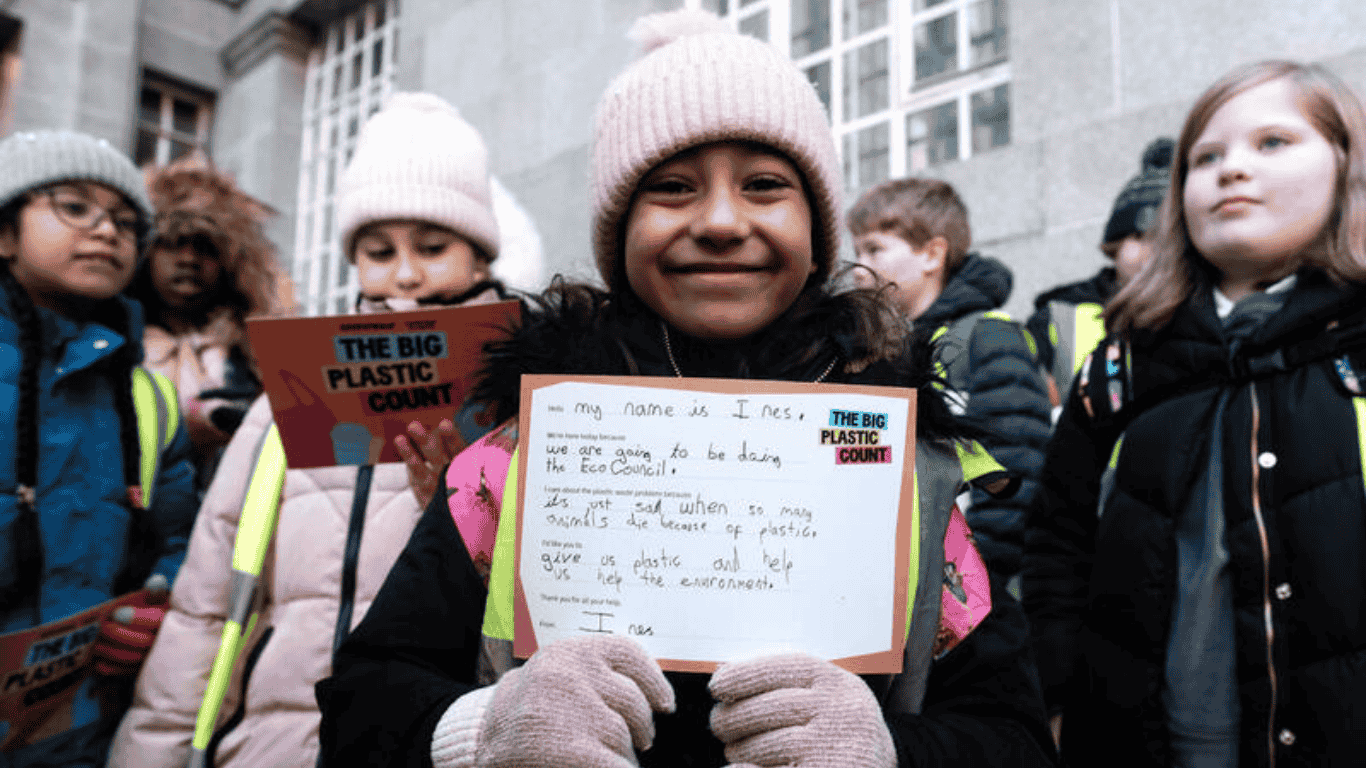 GREENPEACE
THE BIG
PLASTIC
COUNT
Hello my name is Ines.
We're here today because
we are going to be doing
the Eco Council.
I care about the plastic waste problem because
it's just sad when so many
animals die because of plastic.
I'd like you to
give us plastic and help
us help the environment.
Thank you for all your help.
From Ines
THE BIG
PLASTIC
COUNT
THE BIG
PLASTIC
COUNT